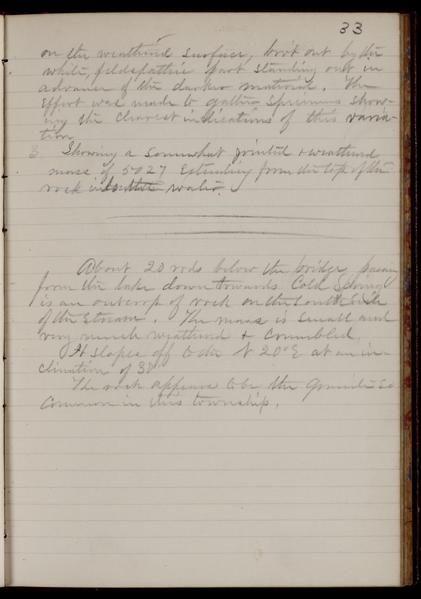 33
on the weathered surface, brot out by the
white, feldspathic part standing out in
advance of the darker material. The
effort was made to gather specimens show-
ing the clearest indications of this varia-
tion.
3 Showing a somewhat jointed & weathered
mass of 5027 Extending from the top of the
rock into the water.
About 20 rods below the bridge,
from the lake down towards Cold Spring
is an outcrop of rock on the South Side
of the Stream. The mass is small and
very much weathered & Crumbled.
It slopes off to the N 20° E at an in-
clination of 38°
The rock appears to be the so
Common in this township.